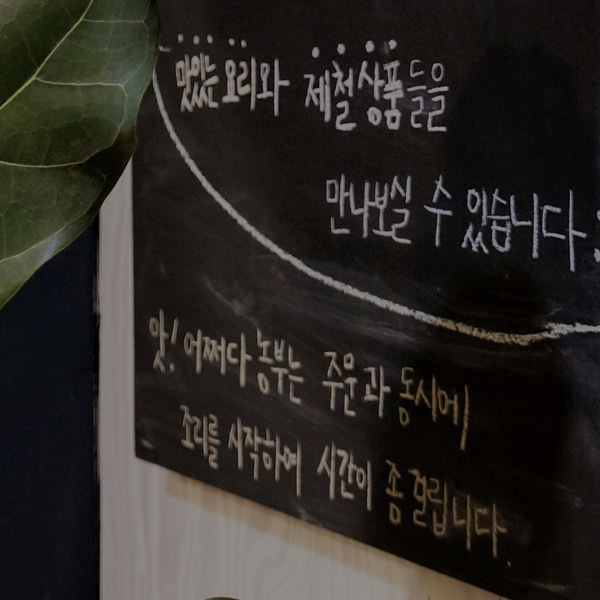 맛있는 요리와 제철상품들을
만나보실 수 있습니다
앗! 어쩌다농부는 주문과 동시에
조리를 시작하여 시간이 좀 걸립니다.